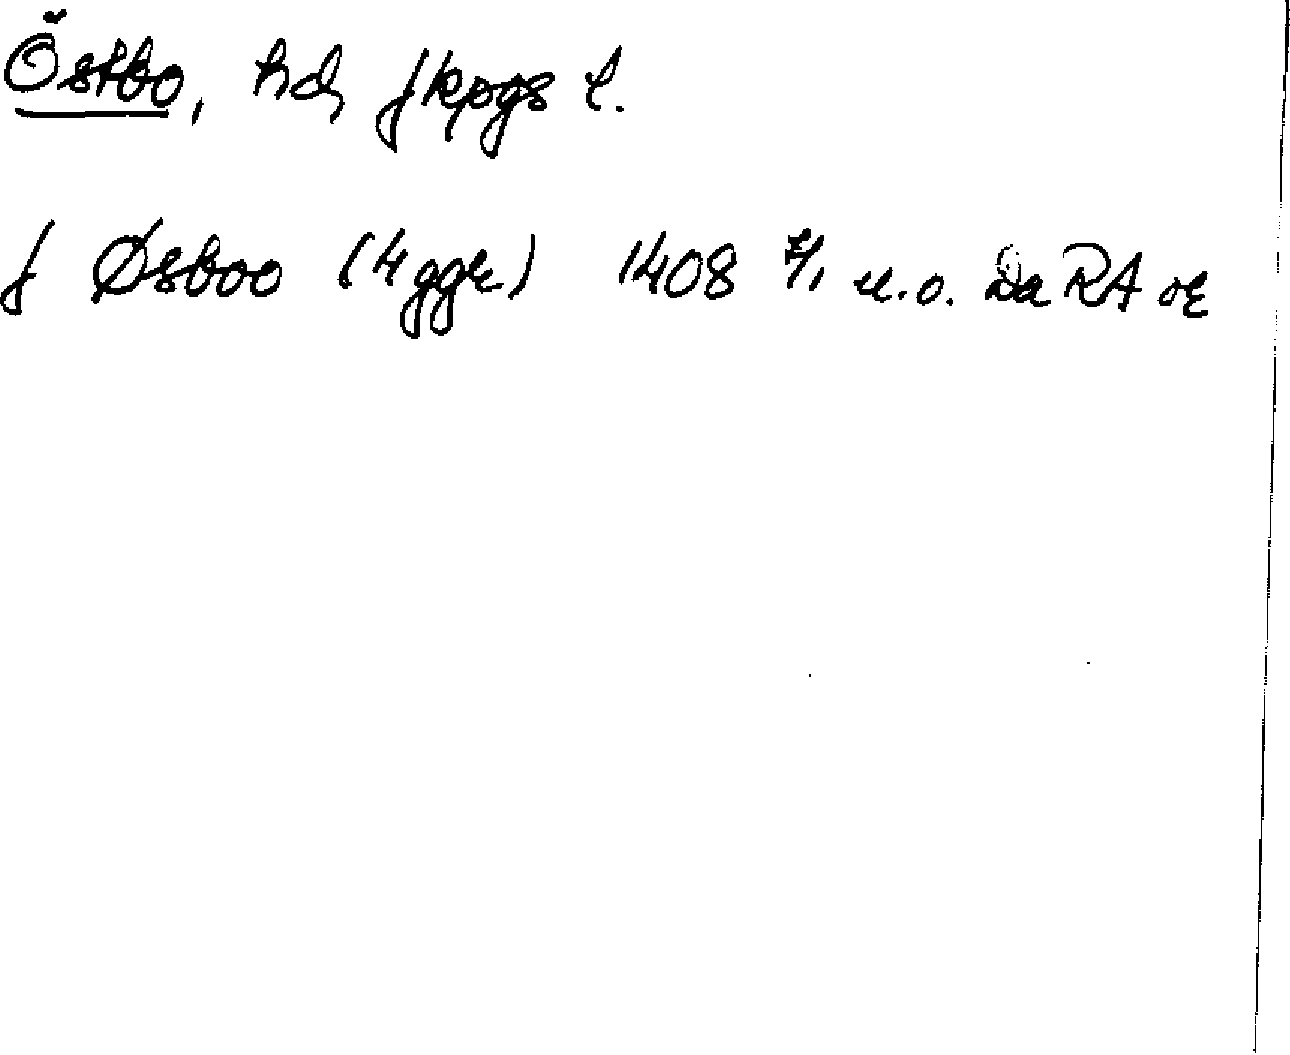 Östbo, hd, Jkpgs l.
J Øsboo (4 ggr) 1408 2/1 u.o. Da RA or